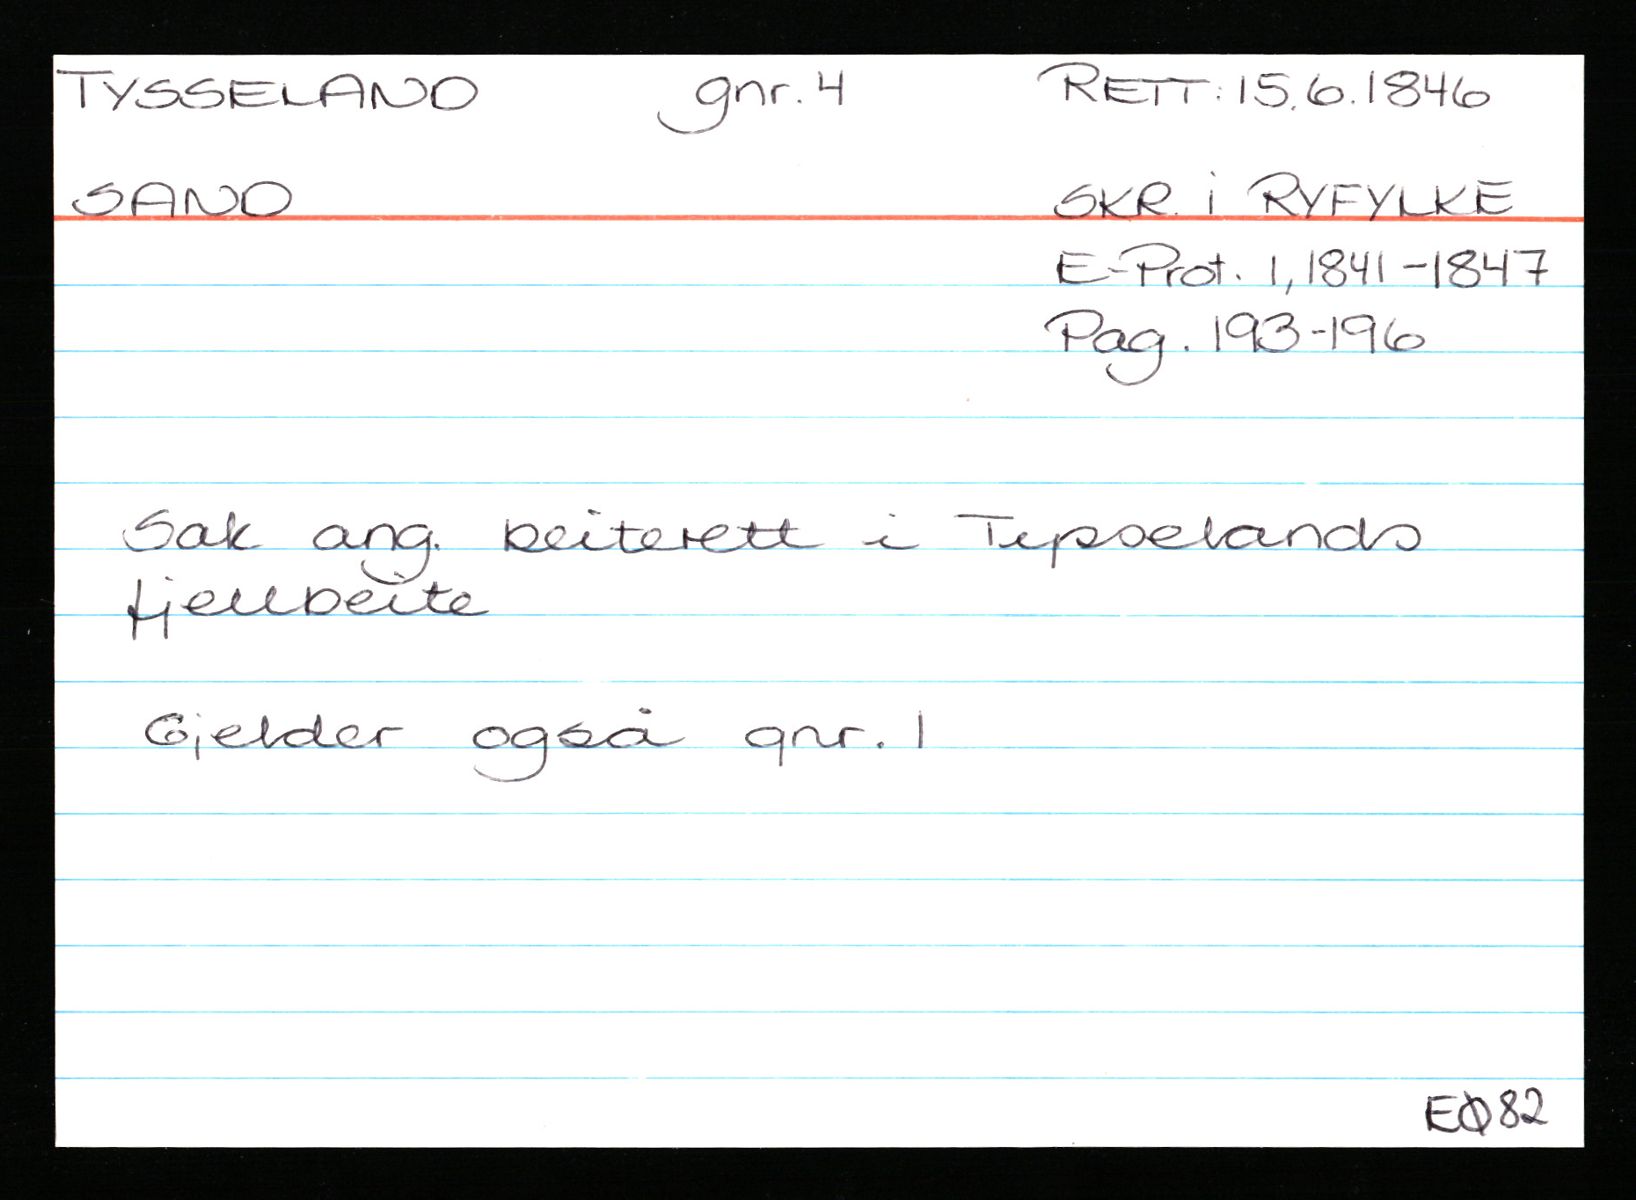 TYSSELAND gnr. 4 RETT: 15.6.1846
SAND SKR. i RYFYLKE
E-Prot. 1, 1841-1847
Pag. 193-196
Sak ang. beiterett i Tysselands
fjellbeite
Gjelder også gnr. 1
EØ82